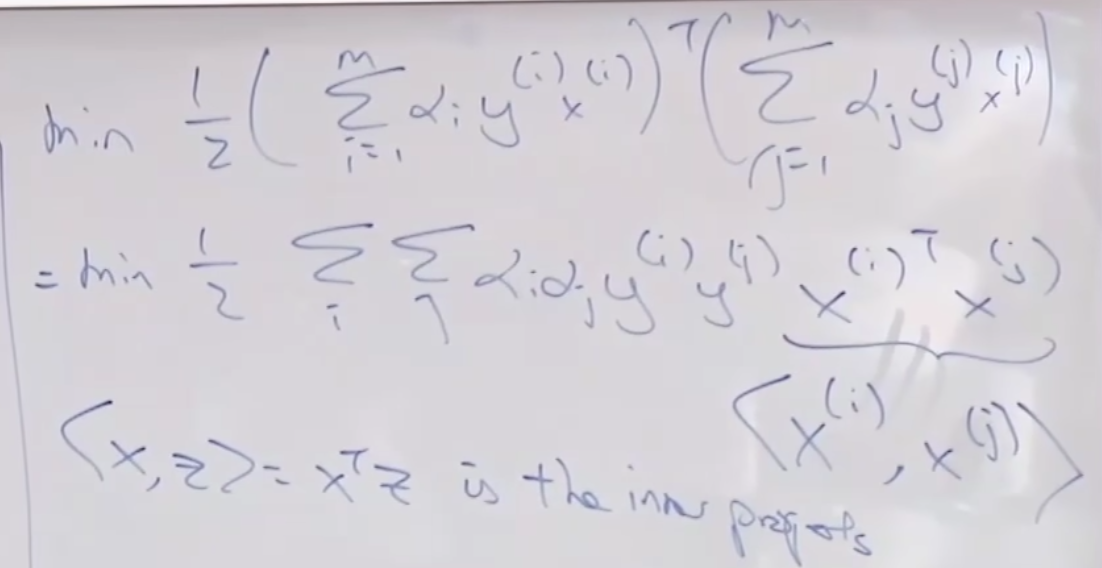 min 1/2 ( Σ_{i=1}^{m} α_i y^{(i)} x^{(i)} )^T ( Σ_{j=1}^{m} α_j y^{(j)} x^{(j)} )
= min 1/2 Σ_i Σ_j α_i α_j y^{(i)} y^{(j)} x^{(i)T} x^{(j)}
⟨x^{(i)}, x^{(j)}⟩
⟨x, z⟩ = x^T z is the inner